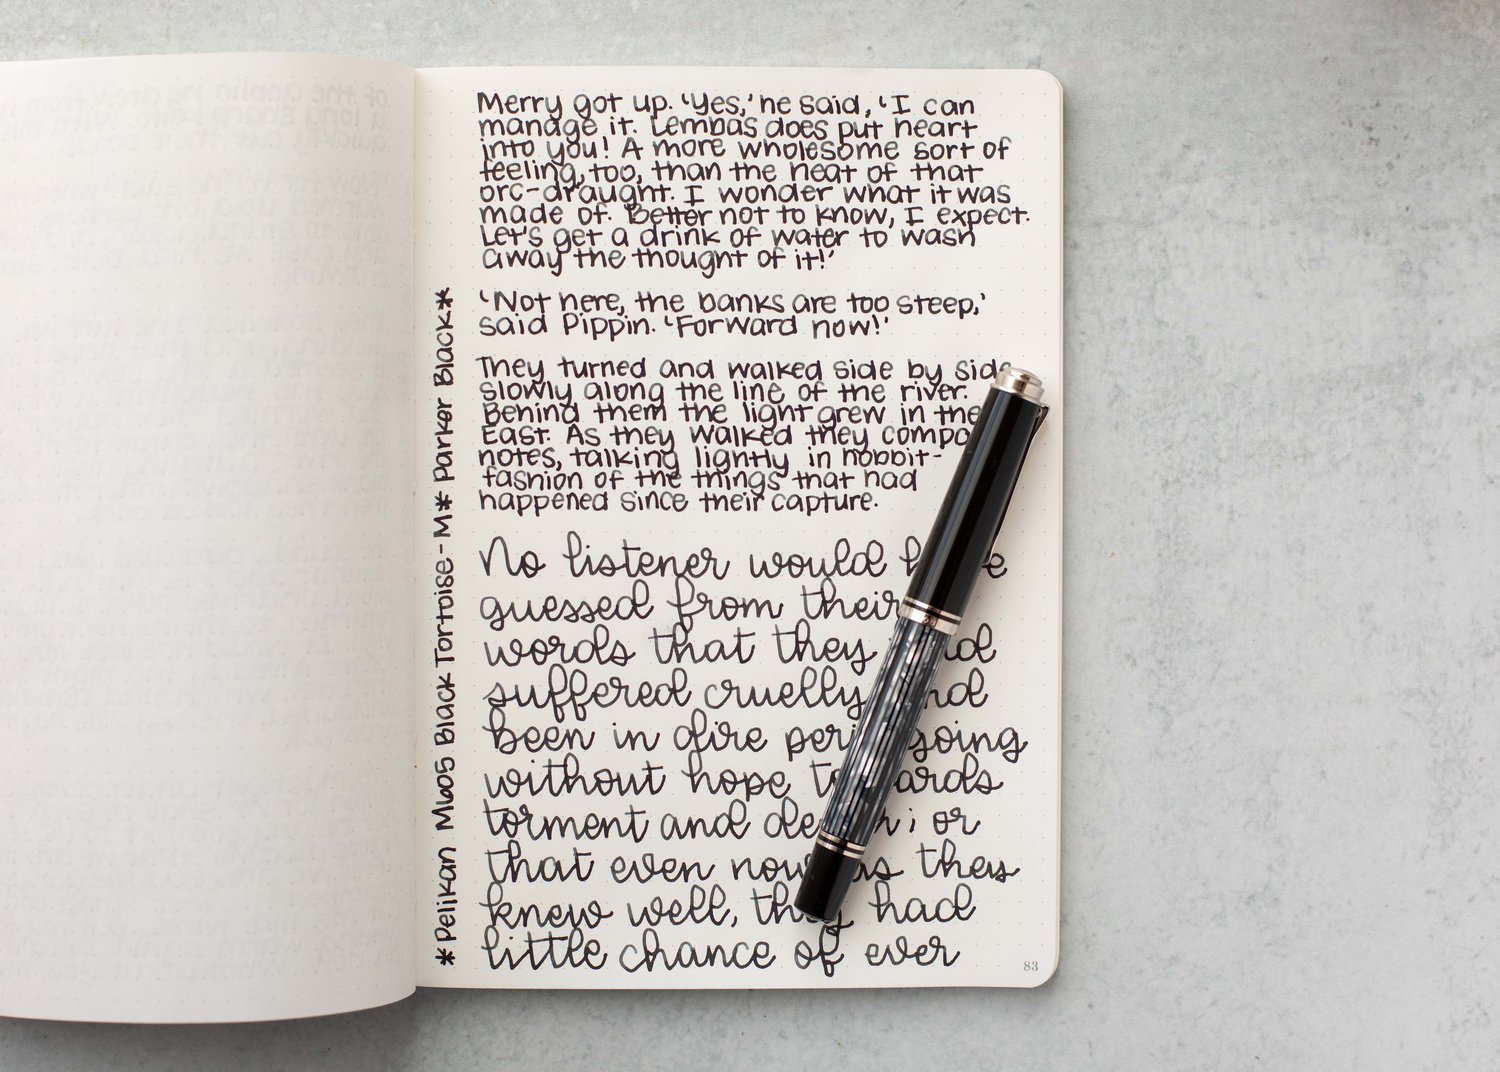 Merry got up. 'Yes,' he said, 'I can
manage it. Lembas does put heart
into you! A more wholesome sort of
feeling, too, than the heat of that
orc-draught. I wonder what it was
made of. Better not to know, I expect.
Let's get a drink of water to wash
away the thought of it!'
'Not here, the banks are too steep,'
said Pippin. 'Forward now!'
They turned and walked side by side
slowly along the line of the river.
Behind them the light grew in the
East. As they walked they compa
notes, talking lightly in hobbit-
fashion of the things that had
happened since their capture.
No listener would
guessed from their
words that they
suffered cruelly
been in dire going
without hope
torment and or
that even now as they
knew well, they had
little chance of ever
*Pelikan M605 Black Tortoise-M* Parker Black*
83